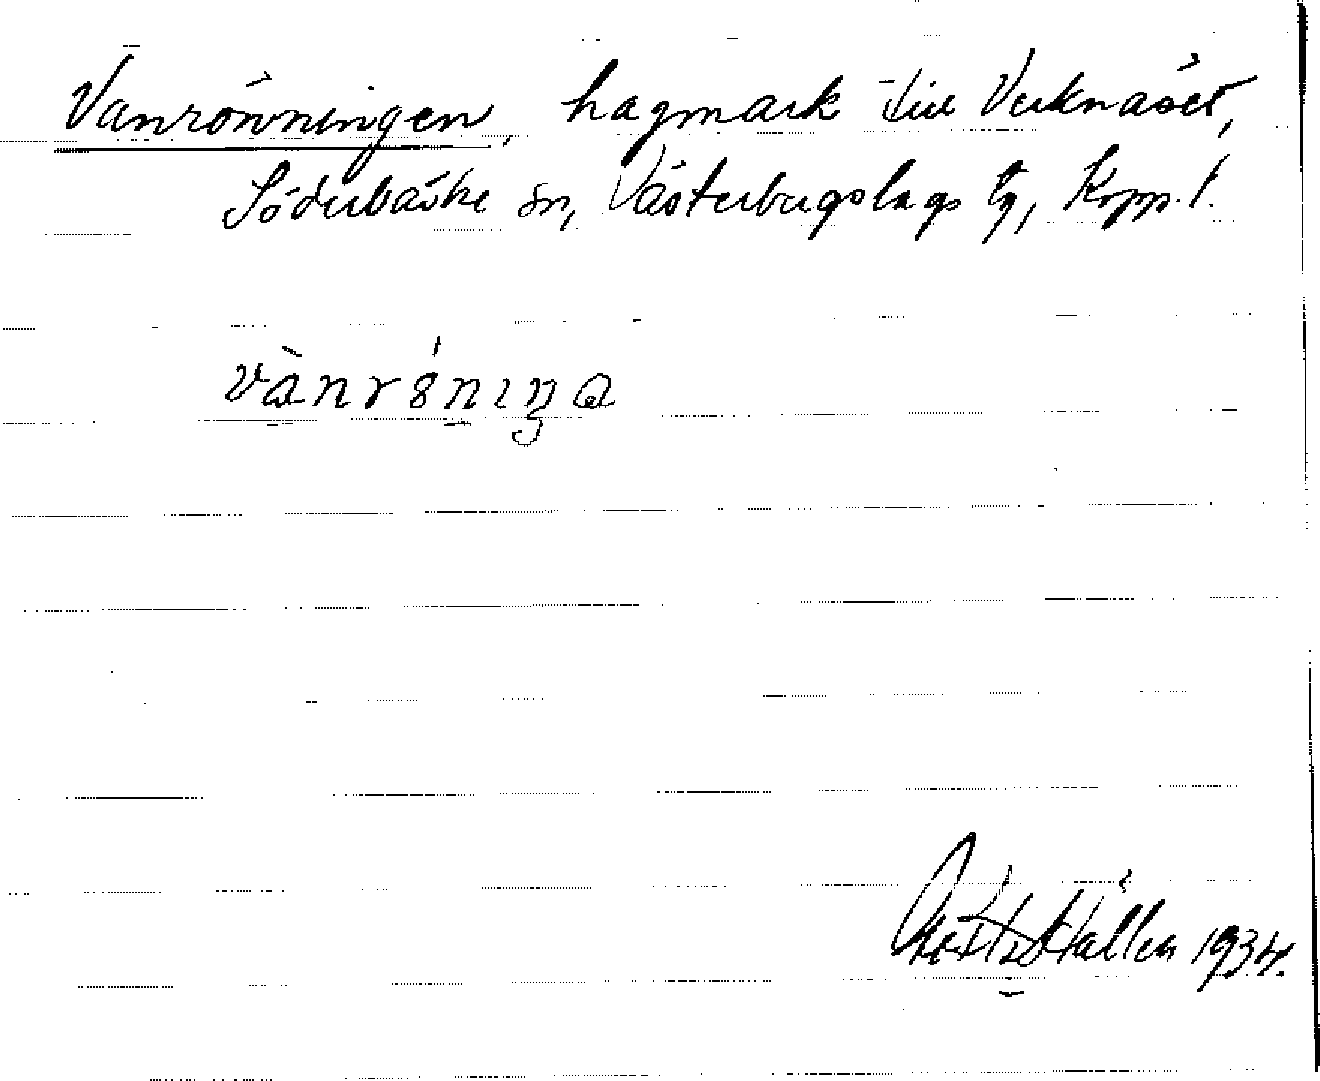 Vanrönningen, hagmark till Verknäset,
Söderbärke sn, Västerbergslags tg, Kopp. l.
vànrönıŋa
Hållen 1934.